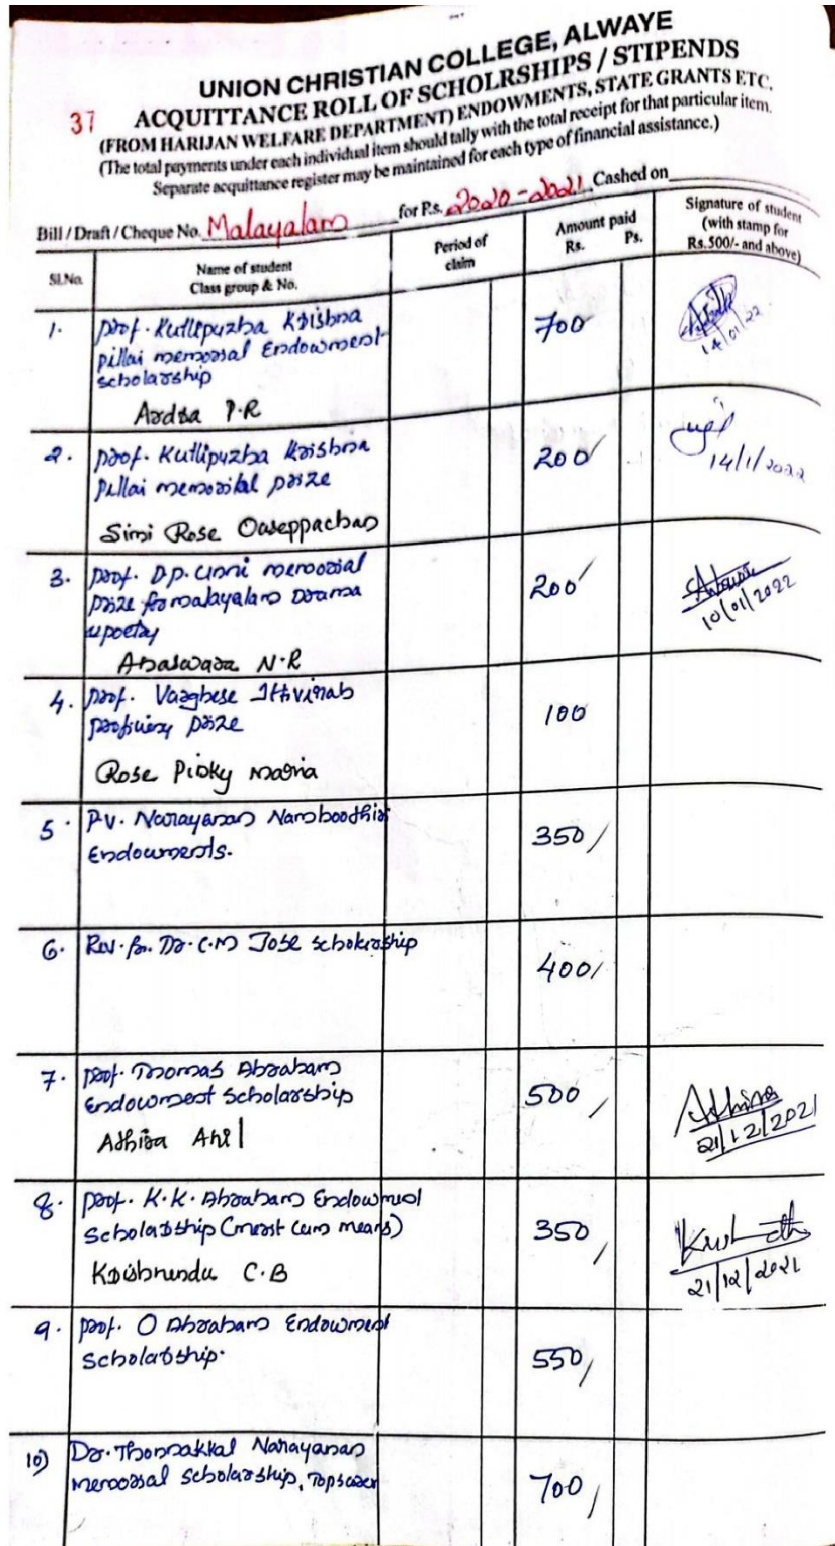 UNION CHRISTIAN COLLEGE, ALWAYE
ACQUITTANCE ROLL OF SCHOLRSHIPS / STIPENDS
37
(FROM HARIJAN WELFARE DEPARTMENT) ENDOWMENTS, STATE GRANTS ETC.
(The total payments under each individual item should tally with the total receipt for that particular item.
Separate acquittance register may be maintained for each type of financial assistance.)
Bill / Draft / Cheque No. Malayalam for Rs. 2020-2021 Cashed on
Sl.No. Name of student Class group & No. Period of claim Amount paid Rs. Ps. Signature of student (with stamp for Rs.500/- and above)
1. Prof. Kuttipuzha Krishna 700
Pillai memorial Endowment
scholarship 14/01/22
Ardra P.R
2. Prof. Kuttipuzha Krishna 200/
Pillai memorial prize 14/1/2022
Simi Rose Ouseppachan
3. Prof. D.P. Unni memorial 200/
prize for malayalam Drama
&poetry 10/01/2022
Abaswara N.R
4. Prof. Varghese Ittivirah 100
prize
Rose Pinky Maria
5. P.V. Narayanan Namboothiri 350/
Endowments.
6. Rev. Fr. Dr. C.M Jose scholarship
400/
7. Prof. Thomas Abraham 500/
Endowment Scholarship Athira
Athira Anil 21/12/2021
8. Prof. K.K. Abraham Endowment
Scholarship (merit cum means) 350/
Krishnendu C.B 21/12/2021
9. Prof. O Abraham Endowment
Scholarship. 550/
10) Dr. Thonnakkal Narayanan
memorial scholarship, Topscorer 700/